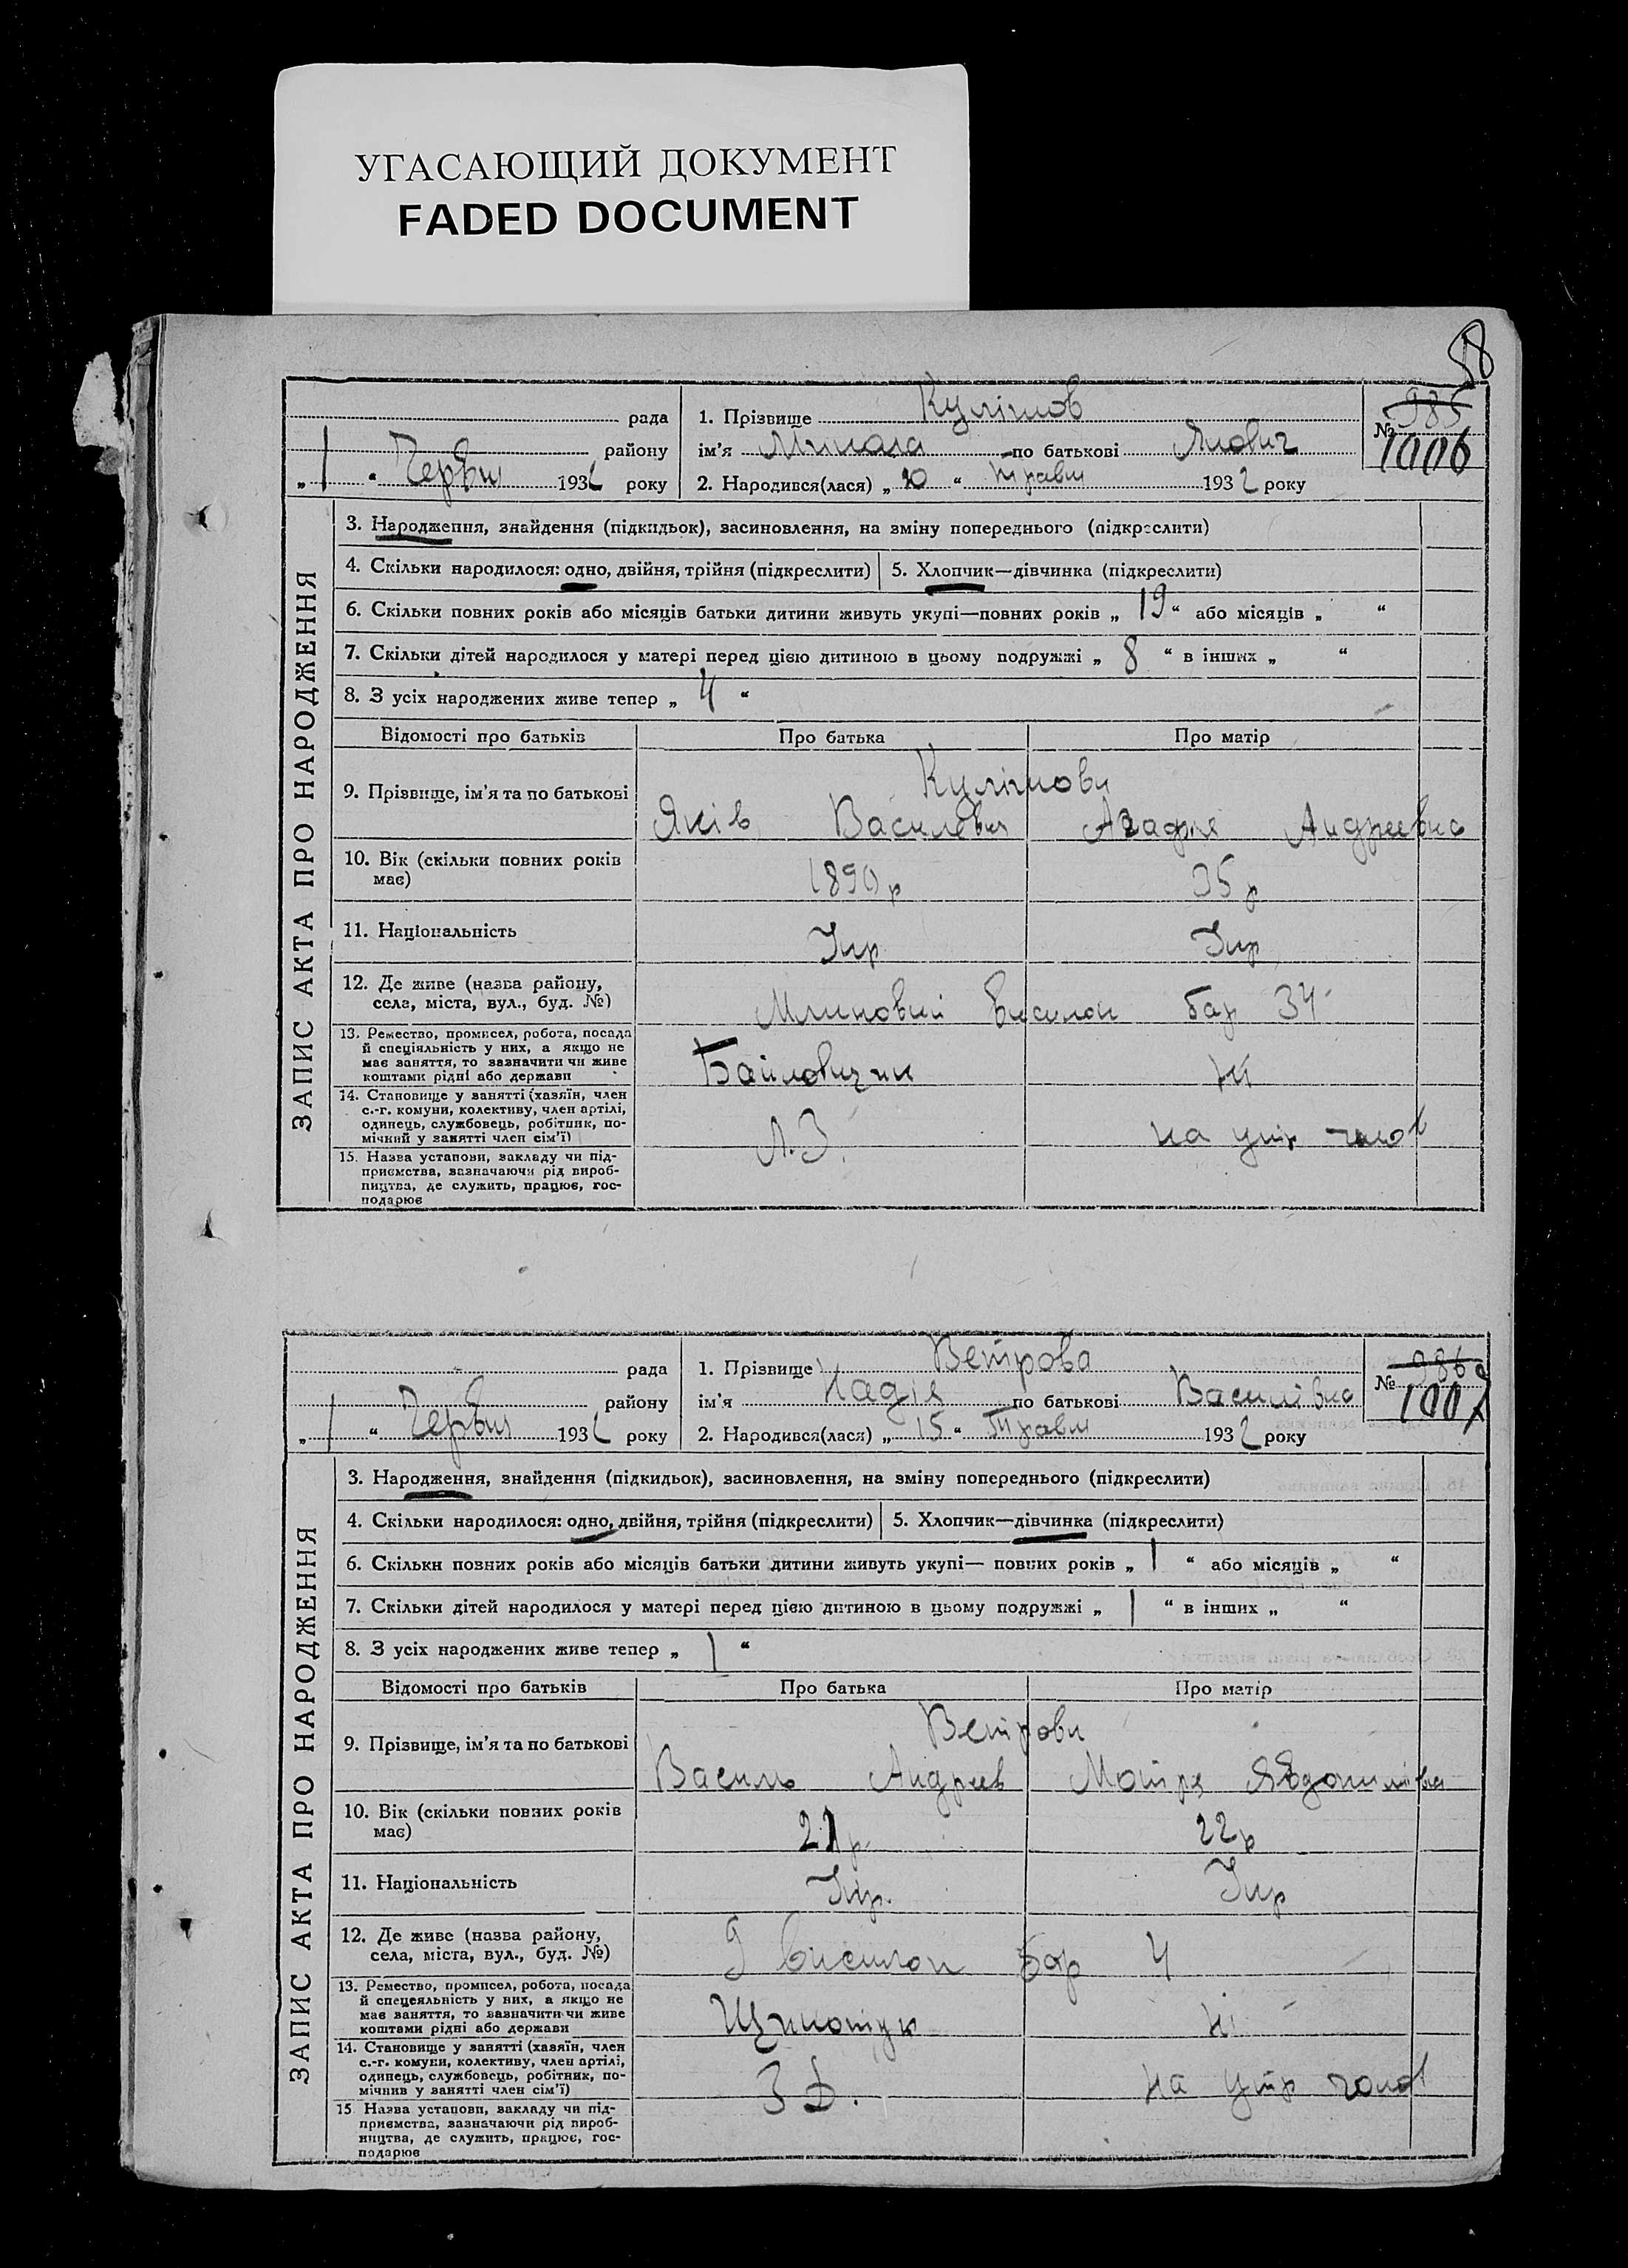 УГАСАЮЩИЙ ДОКУМЕНТ
FADED DOCUMENT
58
ЗАПИС АКТА ПРО НАРОДЖЕННЯ
рада
району
„ 1 “ Червня 1932 року
1. Прізвище
ім'я Микола по батькові Якович
2. Народився(лася) „ 20 “ травня 1932 року
985
№ 1006
3. Народження, знайдення (підкидьок), засиновлення, на зміну попереднього (підкреслити)
4. Скільки народилося: одно, двійня, трійня (підкреслити)
5. Хлопчик—дівчинка (підкреслити)
6. Скільки повних років або місяців батьки дитини живуть укупі—повних років „ 19 “ або місяців „ “
7. Скільки дітей народилося у матері перед цією дитиною в цьому подружжі „ 8 “ в інших „ “
8. З усіх народжених живе тепер „ 4 “
Відомості про батьків Про батька Про матір
9. Прізвище, ім'я та по батькові
Яків Василевич Агафія Андреевна
10. Вік (скільки повних років має) 1890 р 35 р
11. Національність Укр Укр
12. Де живе (назва району, села, міста, вул., буд. №)
висилок бар 34
13. Ремество, промисел, робота, посада й спеціяльність у них, а якщо не має заняття, то зазначити чи живе коштами рідні або держави
ні
14. Становище у занятті (хазяїн, член с.-г. комуни, колективу, член артілі, одинець, службовець, робітник, помічний у занятті член сім'ї)
на утр чолов
15. Назва установи, закладу чи підприємства, зазначаючи рід виробництва, де служить, працює, господарює
ЗАПИС АКТА ПРО НАРОДЖЕННЯ
рада
району
„ 1 “ Червня 1932 року
1. Прізвище Ветрова
ім'я Надія по батькові Василівна
2. Народився(лася) „ 15 “ Травня 1932 року
986
№ 1007
3. Народження, знайдення (підкидьок), засиновлення, на зміну попереднього (підкреслити)
4. Скільки народилося: одно, двійня, трійня (підкреслити)
5. Хлопчик—дівчинка (підкреслити)
6. Скільки повних років або місяців батьки дитини живуть укупі— повних років „ 1 “ або місяців „ “
7. Скільки дітей народилося у матері перед цією дитиною в цьому подружжі „ 1 “ в інших „ “
8. З усіх народжених живе тепер „ 1 “
Відомості про батьків Про батька Про матір
9. Прізвище, ім'я та по батькові
Ветрови
Василь Андреев Мотря
10. Вік (скільки повних років має) 22 р
11. Національність Укр. Укр
12. Де живе (назва району, села, міста, вул., буд. №)
9 висилок бар 4
13. Ремество, промисел, робота, посада й спецеяльність у них, а якщо не має заняття, то зазначити чи живе коштами рідні або держави
ні
14. Становище у занятті (хазяїн, член с.-г. комуни, колективу, член артілі, одинець, службовець, робітник, помічнив у занятті член сім'ї)
на утр чолов
15 Назва установи, закладу чи підприємства, зазначаючи рід виробництва, де служить, працює, господарює